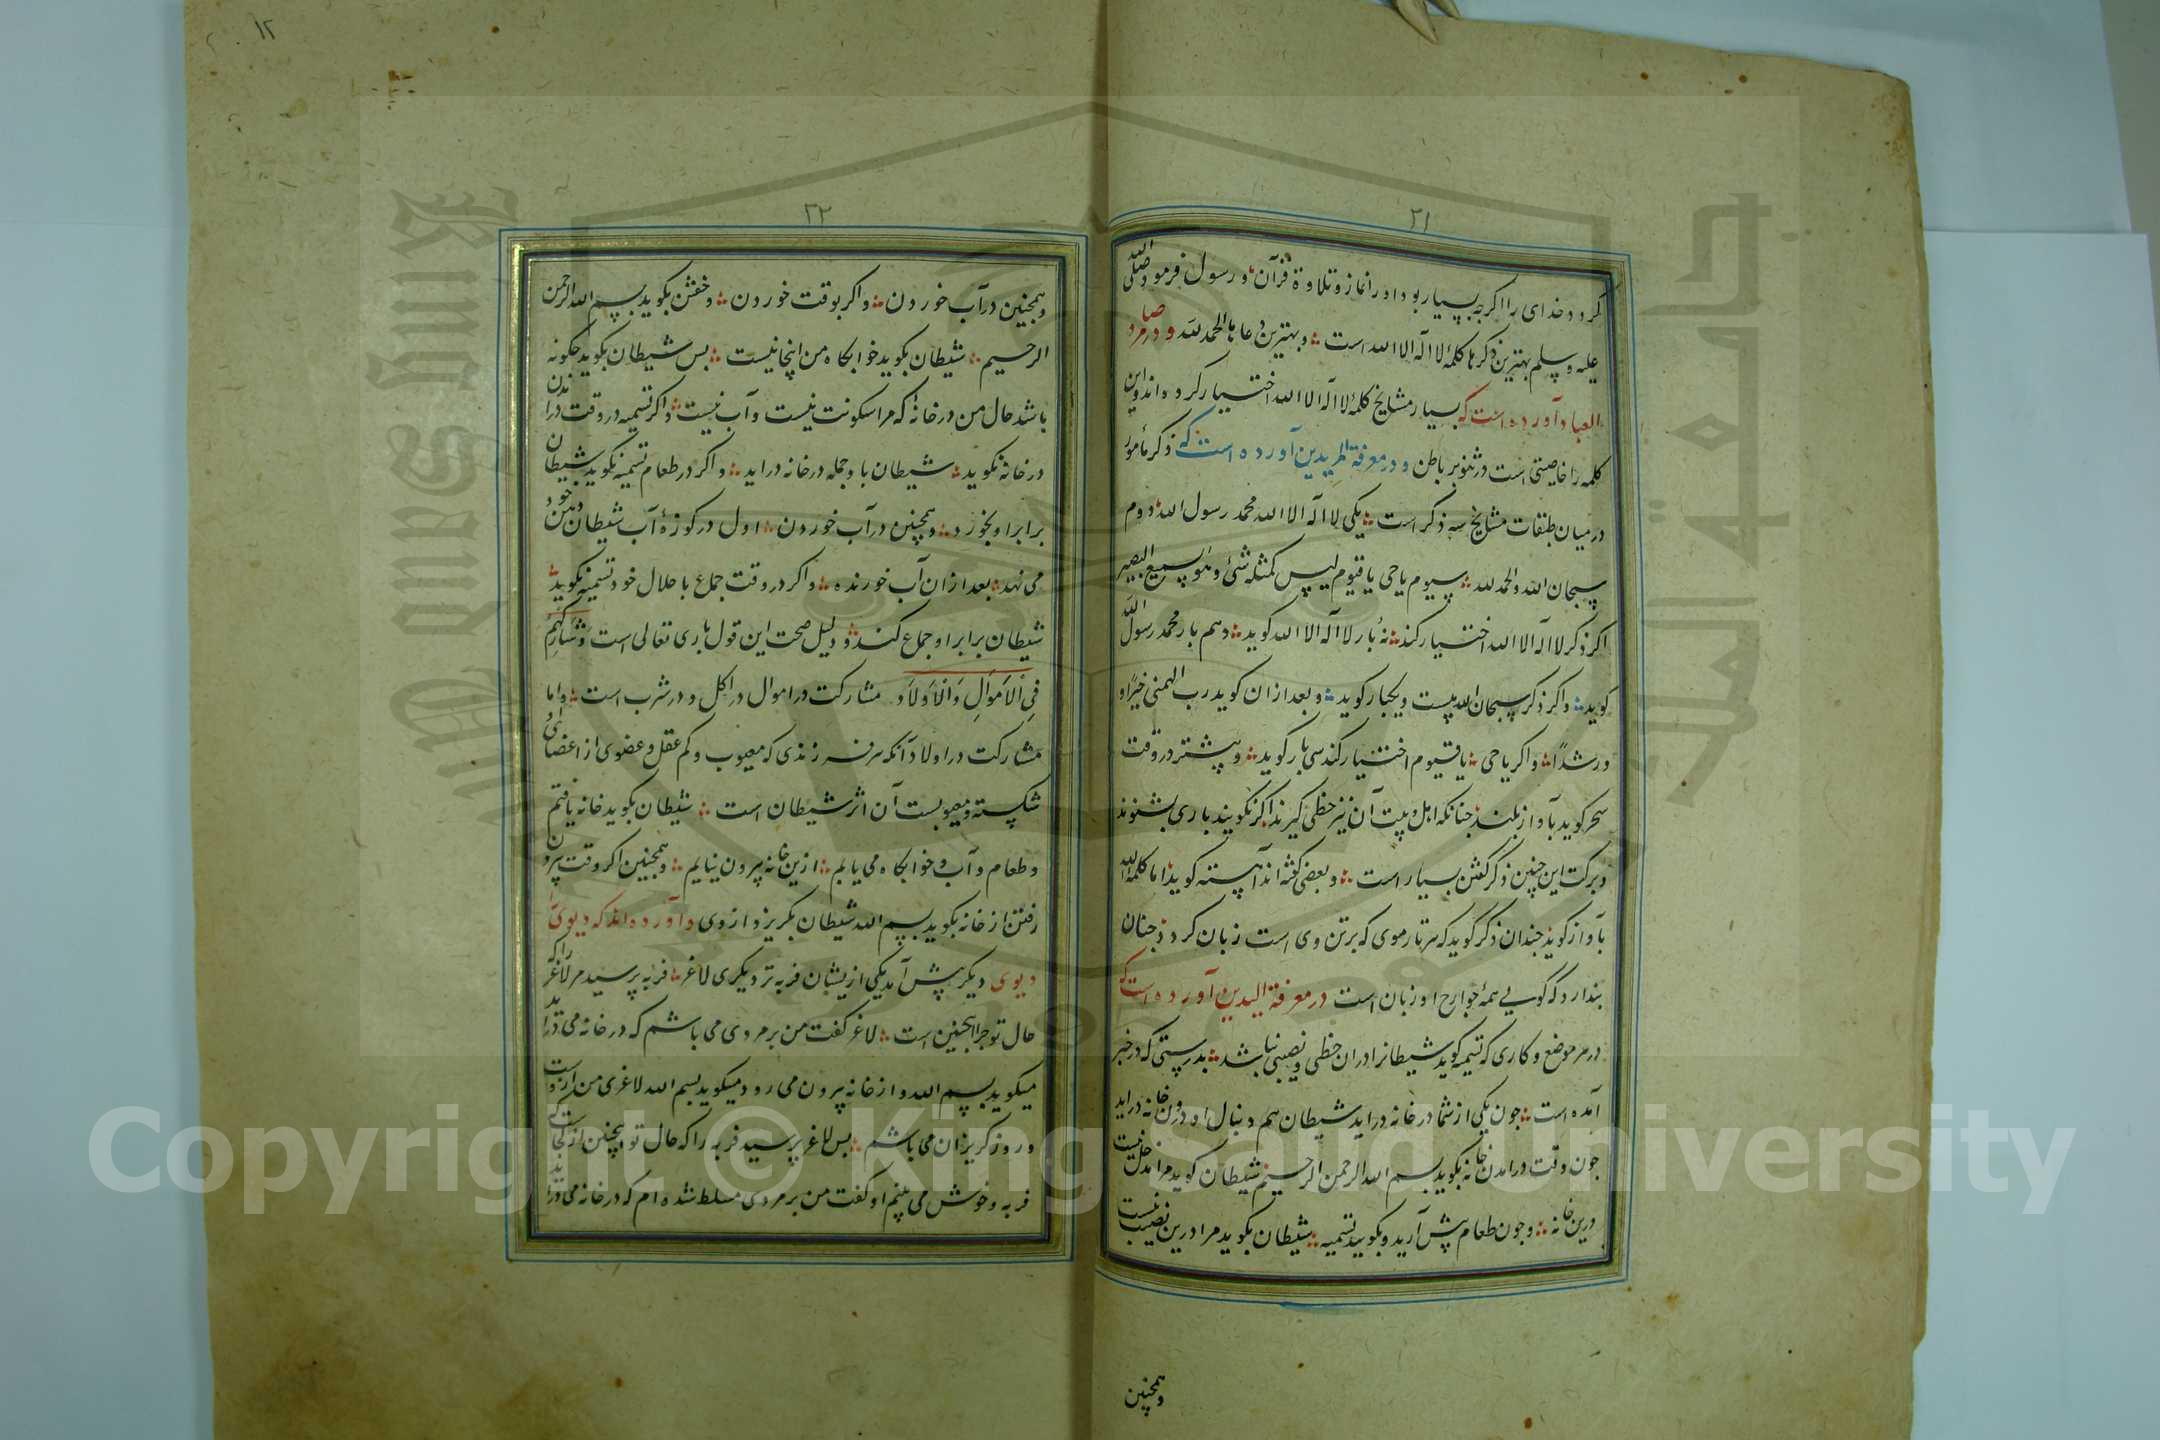 ۲۱
کردد خدای را اگرچه بسیار بود اوراد نماز و تلاوة قرآن و رسول فرمود صلی الله
علیه و سلم بهترین ذکرها کلمهٔ لا اله الا الله است و بهترین دعاها الحمد لله و در مرصاد
العباد آورده است که بسیار مشایخ کلمهٔ لا اله الا الله اختیار کرده اند و این
کلمه را خاصیتی است در تنویر باطن و در معرفة المریدین آورده است که ذکر مأمور
در میان طبقات مشایخ سه ذکر است یکی لا اله الا الله محمد رسول الله دوم
سبحان الله والحمد لله سیوم یا حی یا قیوم لیس کمثله شئ وهو السمیع البصیر
اگر ذکر لا اله الا الله اختیار کند نه بار لا اله الا الله کوید دهم بار محمد رسول الله
کوید و اگر ذکر سبحان الله بیست و یکبار کوید و بعد ازان کوید رب الهمنی خیرا و
و رشدًا و اگر یا حی یا قیوم اختیار کند سی بار کوید و بیشتر در وقت
سحر کوید بآواز بلند جنانکه اهل و بیت آن نیز حظی کیرند اگر نکویند باری بشنوند
و برکت این چنین ذکر کفتن بسیار است و بعضی کفته اند آهسته کوید اما کلمهٔ الله
بآواز کوید جندان ذکر کوید که هر تار موی که بر تن وی است زبان کردد جنان
بندارد که کویی همهٔ جوارح او زبان است در معرفة المریدین آورده است که
در هر موضع و کاری که تسمیه کوید شیطانرا دران حظی و نصیبی نباشد بدرستی که در خبر
آمده است جون یکی از شما در خانه دراید شیطان هم دنبال او درون خانه دراید
جون وقت درامدن خانه بکوید بسم الله الرحمن الرحیم شیطان کوید مرا مدخل نیست
درین خانه و جون طعام پیش آرید و بکویید تسمیه شیطان بکوید مرا درین نصیب نیست
وهمچنین
۱۲
۲۲
وهمچنین در آب خوردن و اگر بوقت خوردن و خفتن بکوید بسم الله الرحمن
الرحیم شیطان بکوید خوابکاه من اینجا نیست بس شیطان بکوید جکونه
باشد حال من در خانهٔ که مرا سکونت نیست و آب نیست و اگر تسمیه در وقت درامدن
در خانه نکوید شیطان باوجمله در خانه دراید و اگر در طعام تسمیه نکوید شیطان
برابر او بخورد و همچنین در آب خوردن اول در کوزهٔ آب شیطان دهن خود
می نهد بعد ازان آب خورنده و اگر در وقت جماع با حلال خود تسمیه نکوید
شیطان برابر او جماع کند و دلیل صحت این قول باری تعالی است وَشَارِكْهُمْ
فِی الْاَمْوَالِ وَالْاَوْلَادِ مشارکت در اموال در اکل و در شرب است و اما
مشارکت در اولاد آنکه هر فرزندی که معیوب و کم عقل و عضوی از اعضای او
شکسته و معیوبست آن اثر شیطان است شیطان بکوید خانه یافتم
و طعام و آب و خوابکاه می یابم ازین خانه بیرون نیایم و همچنین اگر وقت بیرون
رفتن از خانه بکوید بسم الله شیطان بکریزد از وی و آورده اند که دیوی را
دیوی دیکر پیش آمد یکی ازیشان فربه تر دیکری لاغر فربه پرسید مر لاغر را که
حال تو جرا اینجنین است لاغر کفت من بر مردی می باشم که در خانه می دراید
میکوید بسم الله و از خانه بیرون می رود میکوید بسم الله لاغری من ازوست
و روز کریزان می باشم بس لاغر پرسید فربه را که حال تو اینچنین از کجاست که
فربه و خوش می بینم او کفت من بر مردی مسلط شده ام که در خانه می دراید
Copyright © King Saud University
King Saud University